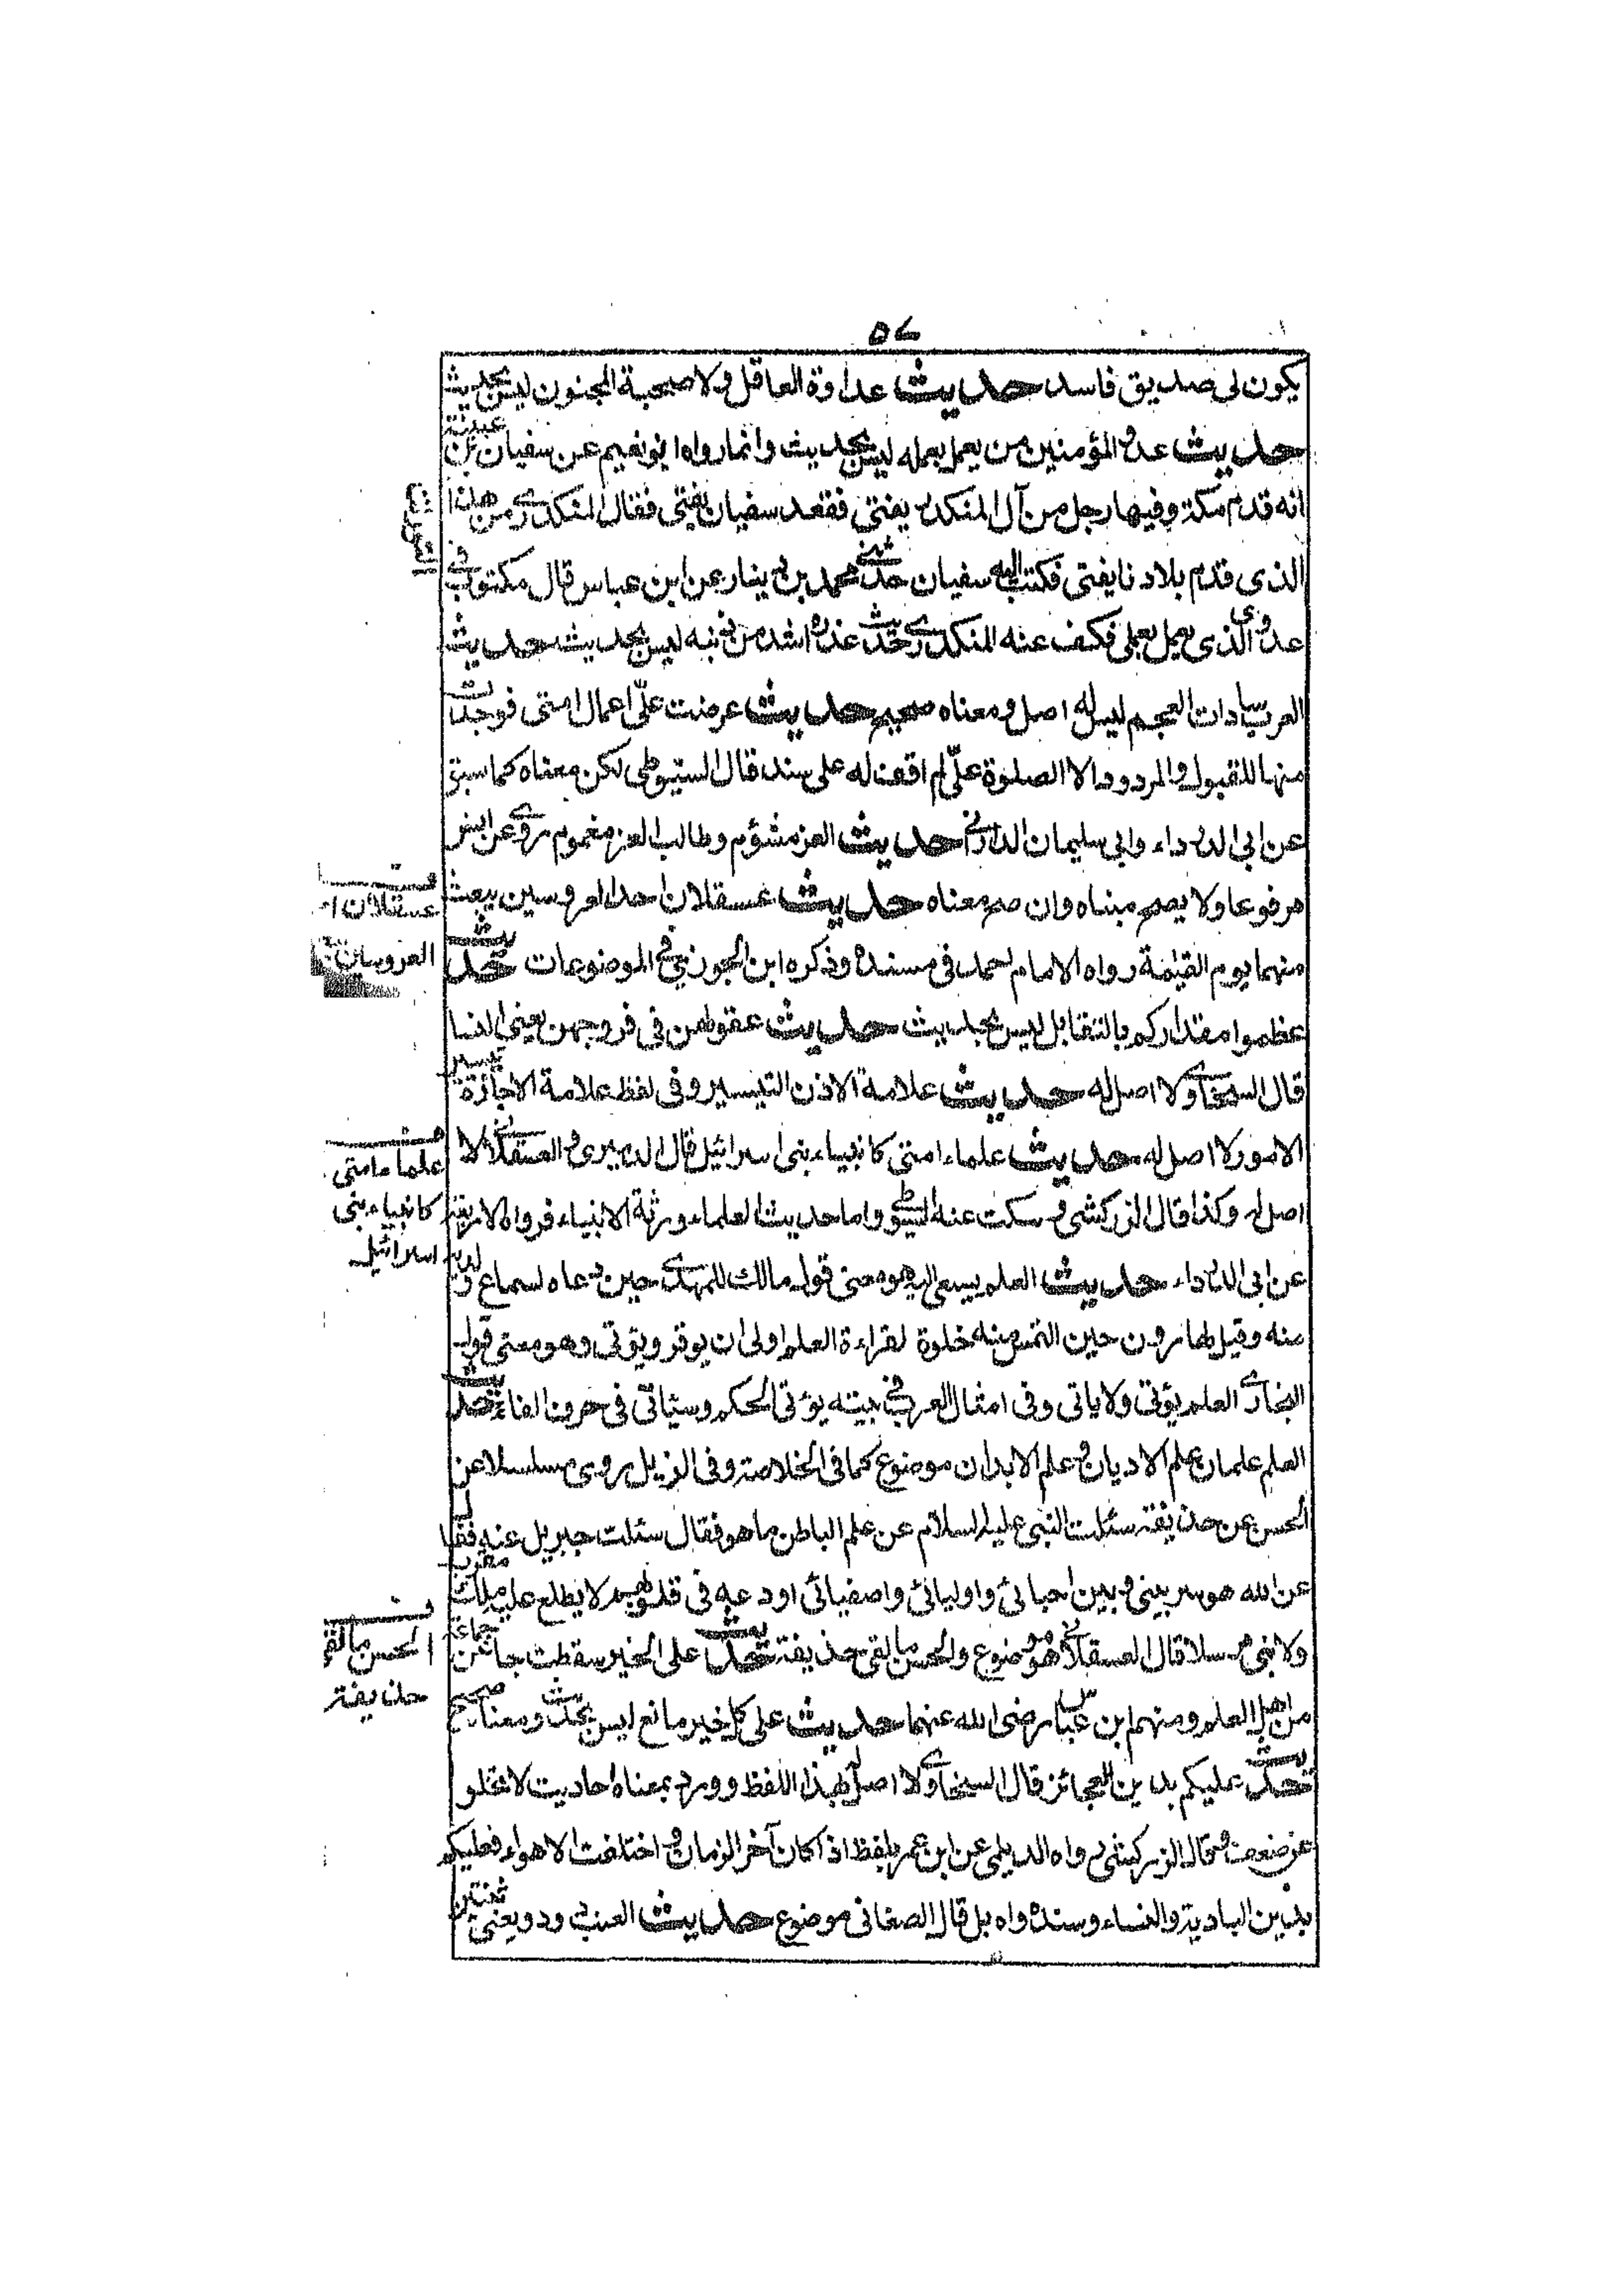 ٥٧
يكون لى صديق فاسد حديث عداوة العاقل ولا صحبة المجنون ليس بحديث
حديث عدو المؤمنين من يعمل بعمله ليس بحديث وانما رواه ابو نعيم عن سفيان بن عيينة
انه قدم مكة وفيها رجل من آل المنكدر يفتى فقعد سفيان يفتى فقال المنكدرى من هذا
الذى قدم بلادنا يفتى فكتب اليه سفيان حدثنى محمد بن دينار عن ابن عباس قال مكتوب فى
عدوى الذى يعمل بعملى فكف عنه المنكدرى حديث عذره اشد من ذنبه ليس بحديث حديث
العرب سادات العجم ليس له اصل ومعناه صحيح حديث عرضت علىّ اعمال امتى فوجدت
منها المقبول والمردود الا الصلوة علىّ لم اقف له على سند قال السيوطى لكن معناه كما سبق
عن ابى الدرداء وابى سليمان الدارانى حديث العز مشؤم وطالب العز مغموم روى عن انس
مرفوعا ولا يصح مبناه وان صح معناه حديث عسقلان احد العروسين يبعث
منهما يوم القيمة رواه الامام احمد فى مسنده وذكره ابن الجوزى فى الموضوعات حديث
عظموا مقداركم بالتقابل ليس بحديث حديث عقولهن فى فروجهن يعنى النسا
قال السخاوى لا اصل له حديث علامة الاذن التيسير وفى لفظ علامة الاجازة تيسير
الامور لا اصل له حديث علماء امتى كانبياء بنى اسرائيل قال الدميرى والعسقلانى لا
اصل له وكذا قال الزركشى وسكت عنه السيوطى واما حديث العلماء ورثة الانبياء فرواه الاربعة
عن ابى الدرداء حديث العلم يسعى اليه هو معنى قول مالك للمهدى حين دعاه لسماع ولديه
منه وقيل لهارون حين التمس منه خلوة لقراءة العلم اولى ان يوقر ويؤتى وهو معنى قول
البخارى العلم يؤتى ولا ياتى وفى امثال العرب فى بيته يؤتى الحكم وسياتى فى حرف الفاء حديث
العلم علمان علم الاديان وعلم الابدان موضوع كما فى الخلاصة وفى الذيل روى مسلسلا عن
الحسن عن حذيفة سئلت النبى عليه السلام عن علم الباطن ما هو فقال سئلت جبريل عنه فقال
عن الله هو سر بينى وبين احبائى واوليائى واصفيائى اودعه فى قلوبهم لا يطلع عليه ملك مقرب
ولا نبى مرسل قال العسقلانى هو موضوع والحسن ما لقى حذيفة حديث على الخبير سقطت جا عن جماعة
من اهل العلم ومنهم ابن عباس رضى الله عنهما حديث على كل خير مانع ليس بحديث ومعناه صحيح
حديث عليكم بدين العجائز قال السخاوى لا اصل له بهذا اللفظ وورد بمعناه احاديث لا تخلو
عن ضعف وقال الزركشى رواه الديلمى عن ابن عمر بلفظ اذا كان آخر الزمان واختلفت الاهواء فعليكم
بدين البادية والنساء وسنده واه بل قال الصغانى موضوع حديث العنب دو دو يعنى ثنتين
عسقلان ا
العروسين
علماء امتى
كانبياء بنى
اسرائيل
الحسن ما لقى
حذيفة